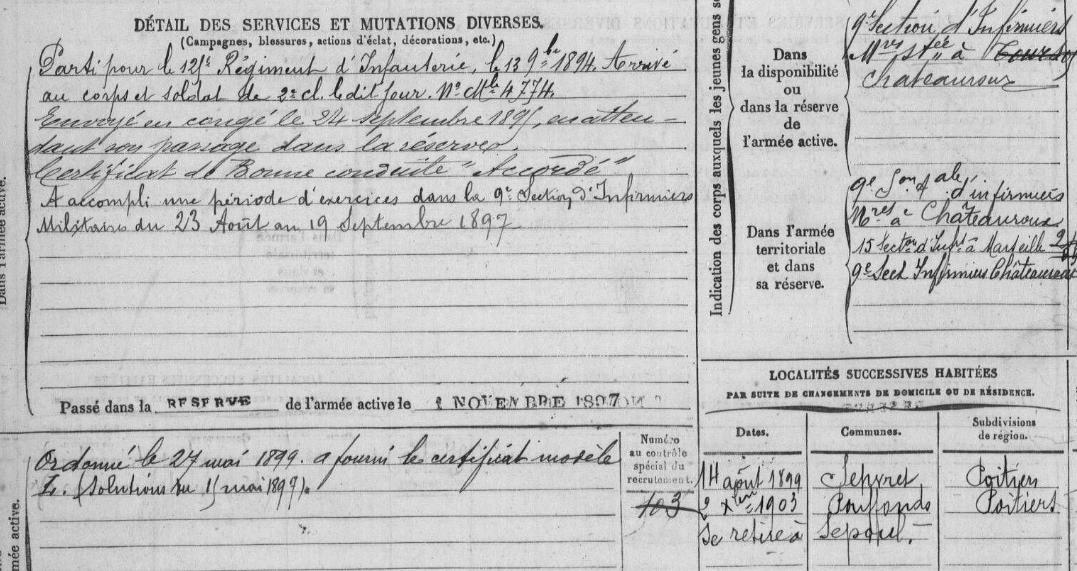 DÉTAIL DES SERVICES ET MUTATIONS DIVERSES.
(Campagnes, blessures, actions d'éclat, décorations, etc.)
Parti pour le 125e Régiment d'Infanterie, le 13 9bre 1894. Arrivé
au corps et soldat de 2e cl. le dit jour. No Mle 4774.
Envoyé en congé le 24 septembre 1895, en atten-
dant son passage dans la réserve.
Certificat de Bonne conduite "Accordé"
A accompli une période d'exercices dans la 9e Section d'Infirmiers
Militaires du 23 Août au 19 Septembre 1897
Passé dans la RESERVE de l'armée active le 1 NOVEMBRE 1897
Dans l'armée active.
Ordonné le 27 mai 1899. a fourni le certificat modèle
(Solutions du mai 1899).
Numéro
au contrôle
spécial du
recrutement.
103
mée active.
Indication des corps auxquels les jeunes gens s
Dans
la disponibilité
ou
dans la réserve
de
l'armée active.
9e Section d'Infirmiers
Mres à Tours
Chateauroux
Dans l'armée
territoriale
et dans
sa réserve.
9e Son d'infirmiers
Mres à Châteauroux
15 Section d'Infrs à Marseille
9e Sect Infirmiers Châteauroux
LOCALITÉS SUCCESSIVES HABITÉES
PAR SUITE DE CHANGEMENTS DE DOMICILE OU DE RÉSIDENCE.
Dates. Communes. Subdivisions de région.
14 août 1899 Sepvret Poitiers
2 Xbre 1903 Poufonds Poitiers
se retire à Sepvret